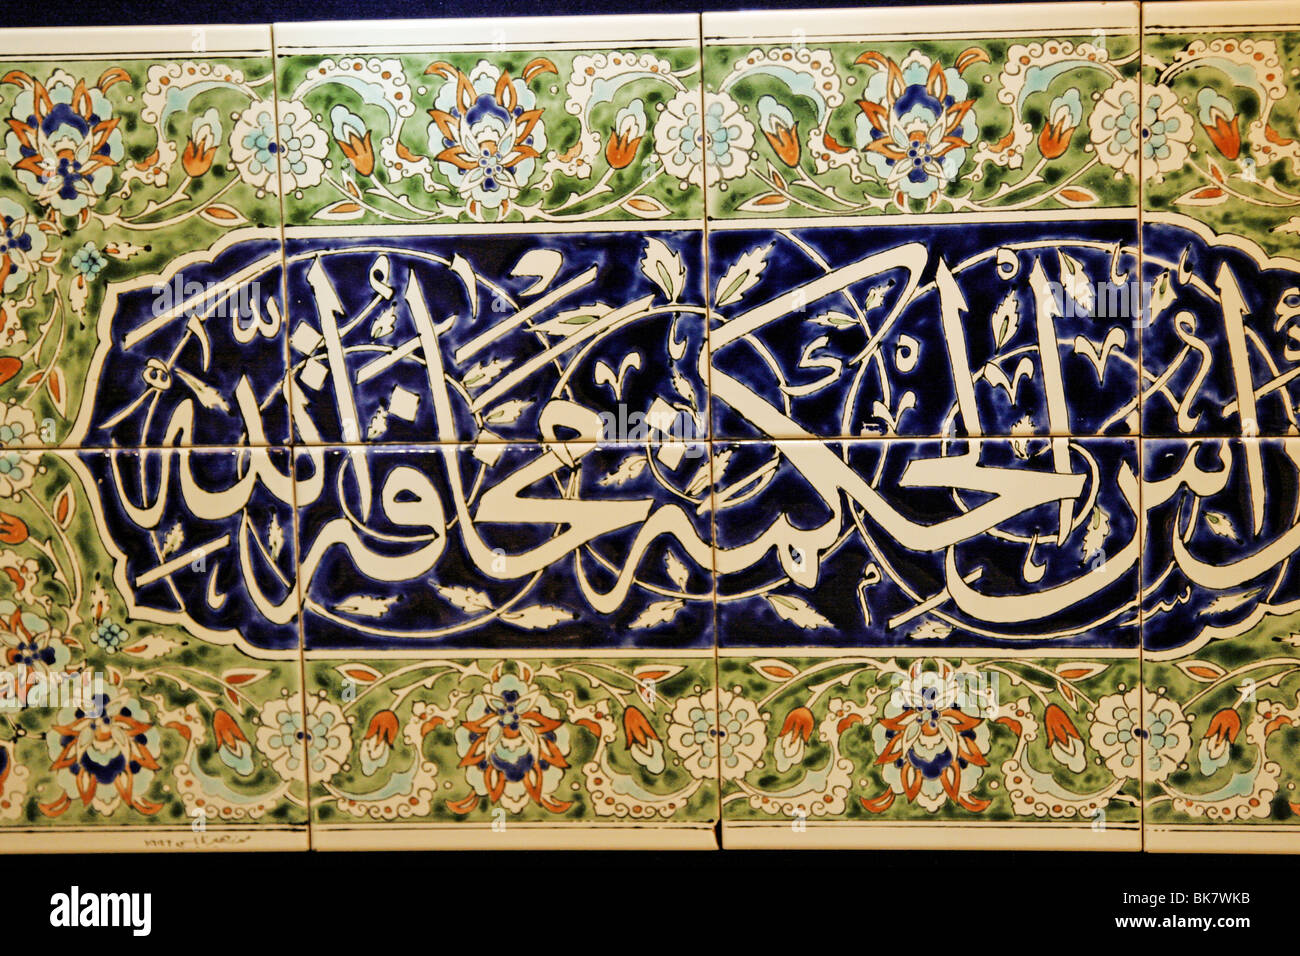 راس الحكمة مخافة الله
١٩٩٢
alamy
alamy
Image ID: BK7WKB
www.alamy.com